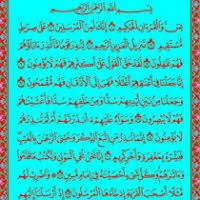 بِسْمِ اللَّهِ الرَّحْمَٰنِ الرَّحِيمِ
يسٓ ۝ وَالْقُرْآنِ الْحَكِيمِ ۝ إِنَّكَ لَمِنَ الْمُرْسَلِينَ ۝ عَلَىٰ صِرَاطٍ
مُّسْتَقِيمٍ ۝ تَنزِيلَ الْعَزِيزِ الرَّحِيمِ ۝ لِتُنذِرَ قَوْمًا مَّا أُنذِرَ آبَاؤُهُمْ
فَهُمْ غَافِلُونَ ۝ لَقَدْ حَقَّ الْقَوْلُ عَلَىٰ أَكْثَرِهِمْ فَهُمْ لَا يُؤْمِنُونَ ۝
إِنَّا جَعَلْنَا فِي أَعْنَاقِهِمْ أَغْلَالًا فَهِيَ إِلَى الْأَذْقَانِ فَهُم مُّقْمَحُونَ ۝
وَجَعَلْنَا مِن بَيْنِ أَيْدِيهِمْ سَدًّا وَمِنْ خَلْفِهِمْ سَدًّا فَأَغْشَيْنَاهُمْ
فَهُمْ لَا يُبْصِرُونَ ۝ وَسَوَاءٌ عَلَيْهِمْ أَأَنذَرْتَهُمْ أَمْ لَمْ تُنذِرْهُمْ
لَا يُؤْمِنُونَ ۝ إِنَّمَا تُنذِرُ مَنِ اتَّبَعَ الذِّكْرَ وَخَشِيَ الرَّحْمَٰنَ بِالْغَيْبِ
فَبَشِّرْهُ بِمَغْفِرَةٍ وَأَجْرٍ كَرِيمٍ ۝ إِنَّا نَحْنُ نُحْيِي الْمَوْتَىٰ وَنَكْتُبُ مَا قَدَّمُوا
وَآثَارَهُمْ وَكُلَّ شَيْءٍ أَحْصَيْنَاهُ فِي إِمَامٍ مُّبِينٍ ۝ وَاضْرِبْ لَهُم
مَّثَلًا أَصْحَابَ الْقَرْيَةِ إِذْ جَاءَهَا الْمُرْسَلُونَ ۝ إِذْ أَرْسَلْنَا إِلَيْهِمُ